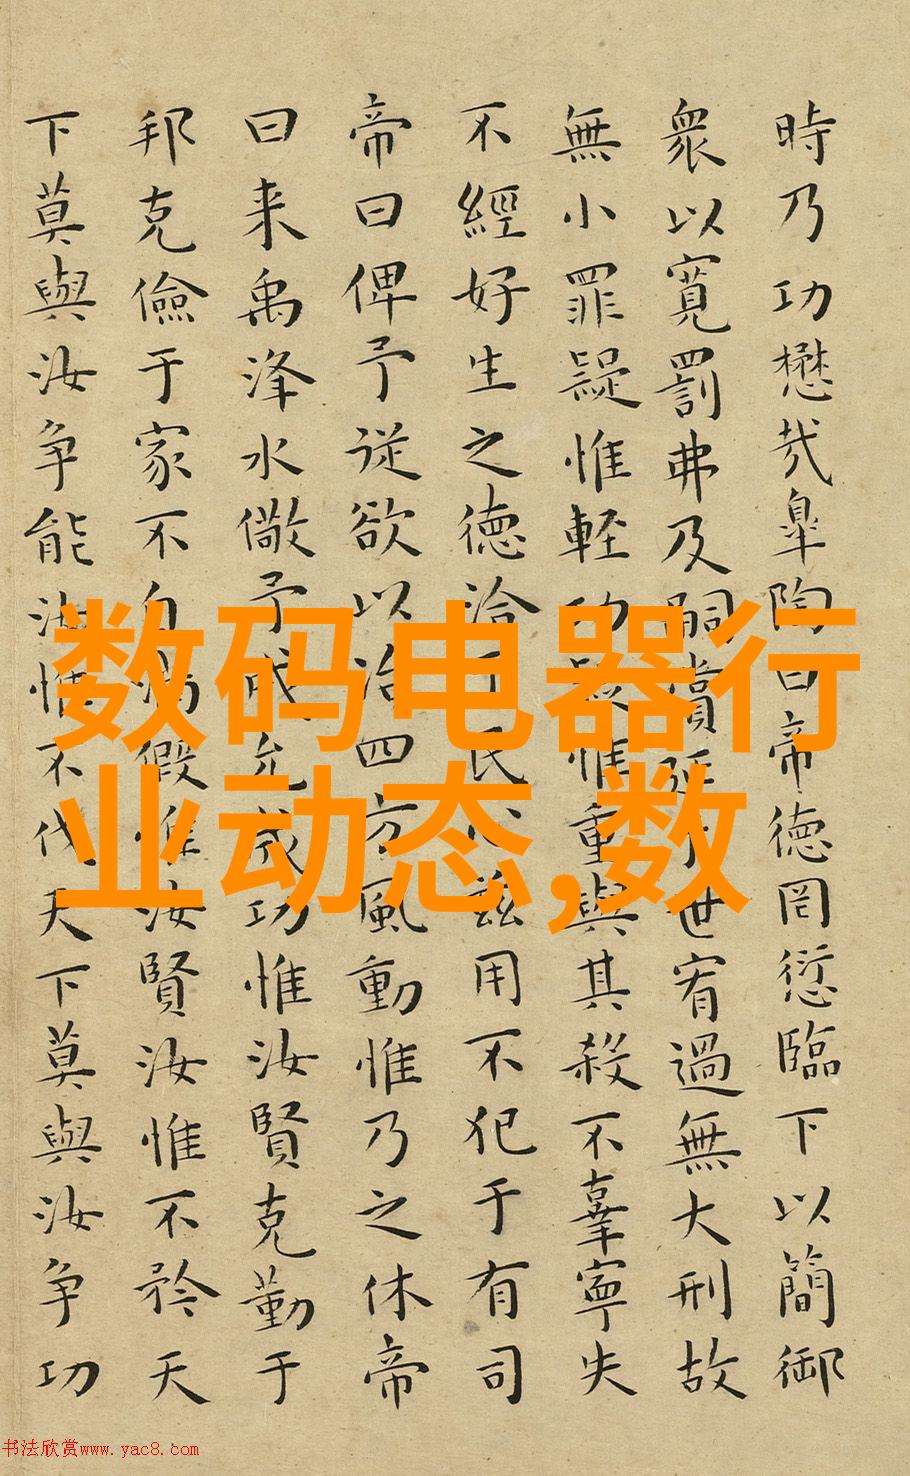 時乃功懋哉皐陶曰帝德罔愆臨下以簡御
衆以寬罰弗及嗣賞延于世宥過無大刑故
無小罪疑惟輕功疑惟重與其殺不辜寧失
不經好生之德洽于民心兹用不犯于有司
帝曰俾予従欲以治四方風動惟乃之休帝
曰来禹洚水儆予成允成功惟汝賢克勤于
邦克儉于家不自滿假惟汝賢汝惟不矜天
下莫與汝争能汝惟不伐天下莫與汝争功
数码电器行
业动态,数
书法欣赏www.yac8.com